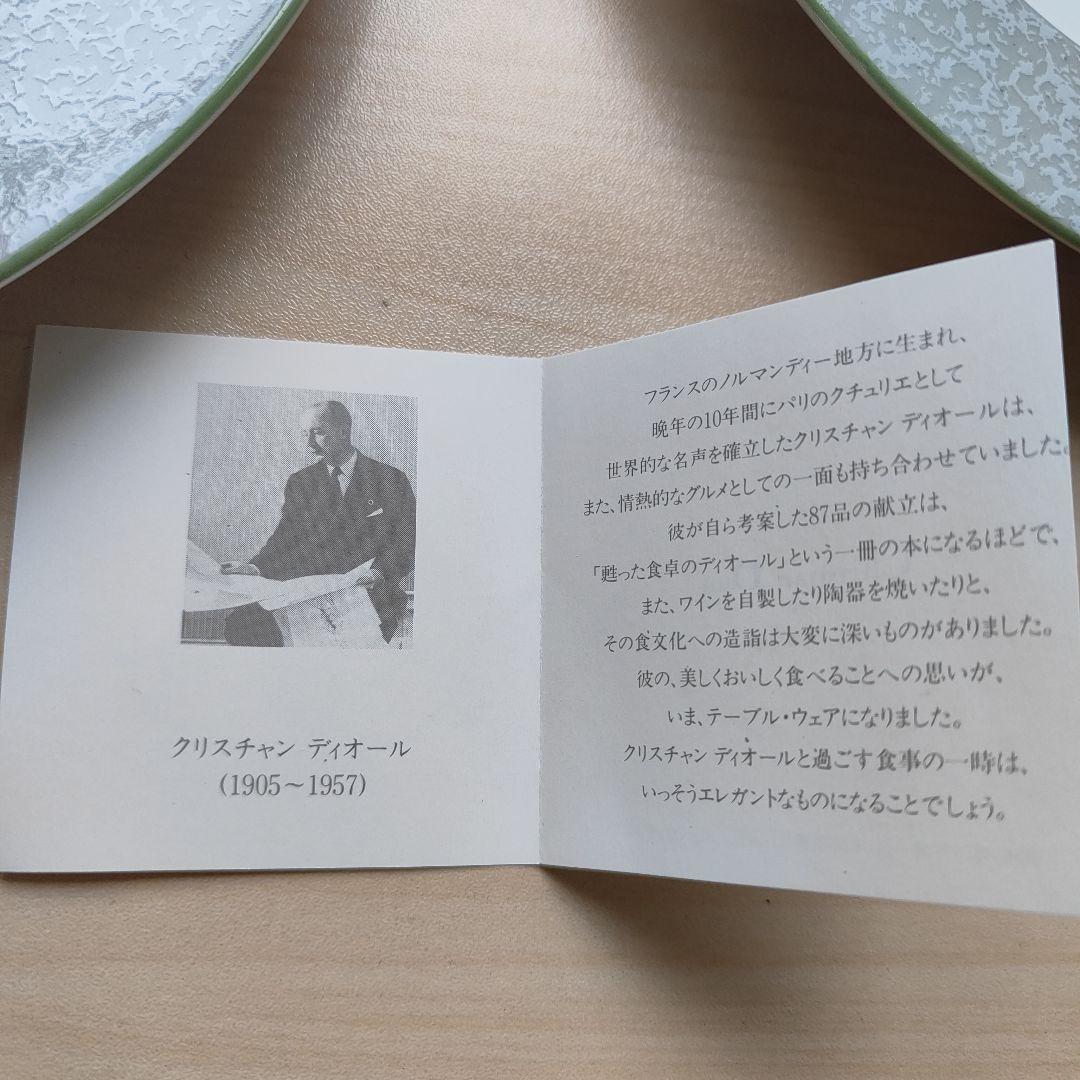 クリスチャン ディオール
(1905～1957)
フランスのノルマンディー地方に生まれ、
晩年の10年間にパリのクチュリエとして
世界的な名声を確立したクリスチャン ディオールは、
また、情熱的なグルメとしての一面も持ち合わせていました。
彼が自ら考案した87品の献立は、
「甦った食卓のディオール」という一冊の本になるほどで、
また、ワインを自製したり陶器を焼いたりと、
その食文化への造詣は大変に深いものがありました。
彼の、美しくおいしく食べることへの思いが、
いま、テーブル・ウェアになりました。
クリスチャン ディオールと過ごす食事の一時は、
いっそうエレガントなものになることでしょう。